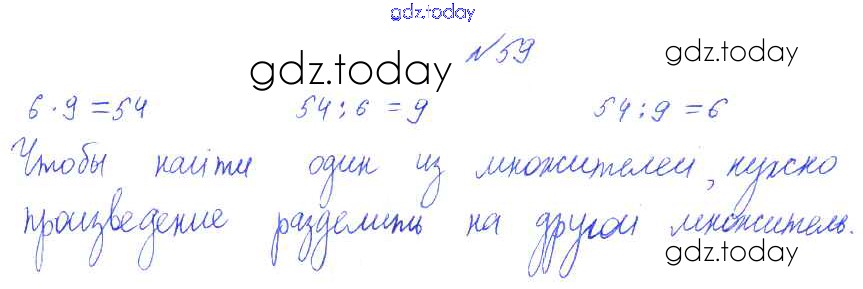 gdz.today
№59
gdz.today
gdz.today
6 · 9 = 54 54 : 6 = 9 54 : 9 = 6
Чтобы найти один из множителей, нужно
произведение разделить на другой множитель.
gdz.today
gdz.today